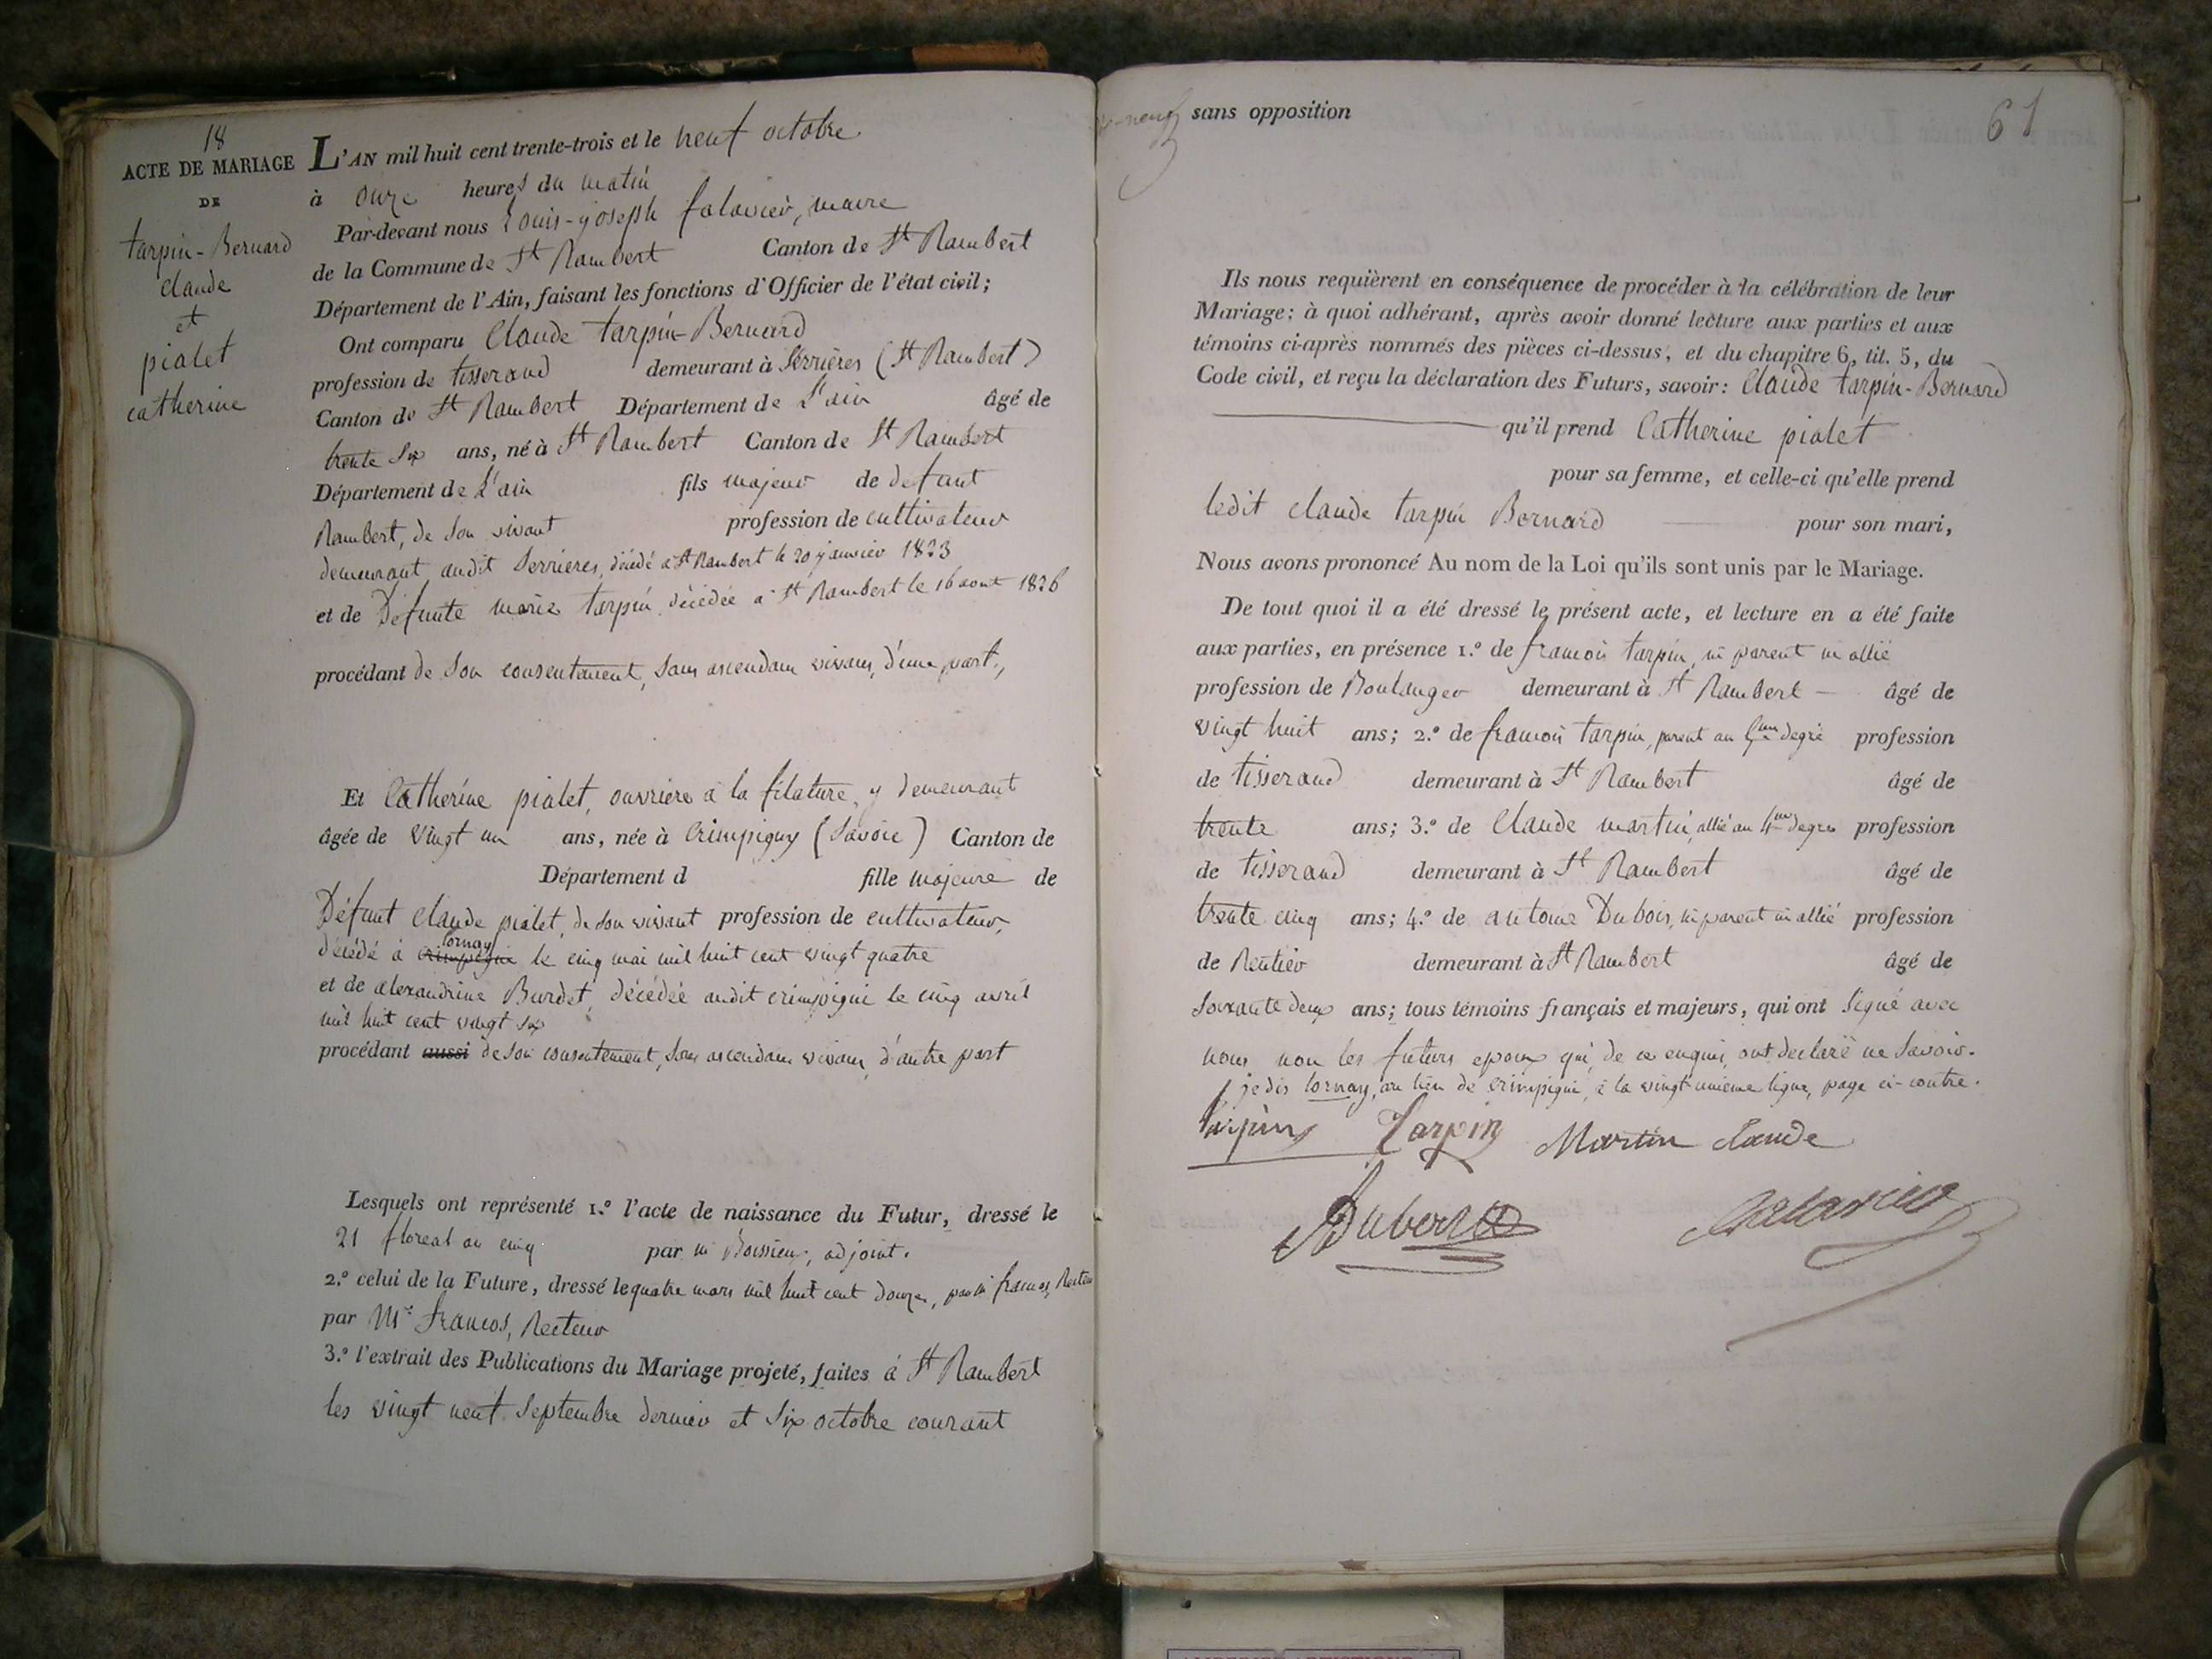 18
ACTE DE MARIAGE
DE
tarpin-Bernard
claude
et
pialet
catherine
L'AN mil huit cent trente-trois et le neuf octobre
à onze heures du matin
Par-devant nous Louis-joseph falavier, maire
de la Commune de St Rambert Canton de St Rambert
Département de l'Ain, faisant les fonctions d'Officier de l'état civil;
Ont comparu Claude tarpin-Bernard
profession de tisserand demeurant à Serrières (St Rambert)
Canton de St Rambert Département de L'ain âgé de
trente six ans, né à St Rambert Canton de St Rambert
Département de L'ain fils majeur de defunt
Rambert, de son vivant profession de cultivateur
demeurant audit Serrieres, décédé à St Rambert le 20 janvier 1823
et de Défunte marie tarpin décédée à St Rambert le 16 aout 1826
procédant de son consentement, sans ascendans vivans, d'une part,
Et Catherine pialet, ouvrière à la filature, y demeurant
âgée de vingt un ans, née à Crimpigny (Savoie) Canton de
Département d fille majeure de
Défunt claude pialet, de son vivant profession de cultivateur,
lornay
décédé à crimpigni le cinq mai mil huit cent vingt quatre
et de alexandrine Burdet, décédée audit crimpigni le cinq avril
mil huit cent vingt six
procédant aussi de son consentement, sans ascendans vivans, d'autre part
Lesquels ont représenté 1.º l'acte de naissance du Futur, dressé le
21 floreal an cinq par m Boissieu, adjoint.
2.º celui de la Future, dressé le quatre mars mil huit cent douze, par m francos, Recteur
par Mr francos, Recteur
3.º l'extrait des Publications du Mariage projeté, faites à St Rambert
les vingt neuf septembre dernier et six octobre courant
sans opposition
61
Ils nous requièrent en conséquence de procéder à la célébration de leur
Mariage; à quoi adhérant, après avoir donné lecture aux parties et aux
témoins ci-après nommés des pièces ci-dessus, et du chapitre 6, tit. 5, du
Code civil, et reçu la déclaration des Futurs, savoir: Claude tarpin-Bernard
qu'il prend Catherine pialet
pour sa femme, et celle-ci qu'elle prend
ledit claude tarpin Bernard pour son mari,
Nous avons prononcé Au nom de la Loi qu'ils sont unis par le Mariage.
De tout quoi il a été dressé le présent acte, et lecture en a été faite
aux parties, en présence 1.º de francois tarpin, ni parent ni allié
profession de Boulanger demeurant à St Rambert âgé de
vingt huit ans; 2.º de francois tarpin, parent au degré profession
de tisserand demeurant à St Rambert âgé de
trente ans; 3.º de Claude martin, allié au 4me degré profession
de tisserand demeurant à St Rambert âgé de
trente cinq ans; 4.º de antoine Dubois, ni parent ni allié profession
de Rentier demeurant à St Rambert âgé de
soixante deux ans; tous témoins français et majeurs, qui ont signé avec
nous non les futurs epoux qui, de ce enquis, ont déclaré ne savoir.
je dis lornay, au lieu de crimpigni, à la vingt-unieme ligne, page ci-contre.
tarpin Tarpin Martin claude